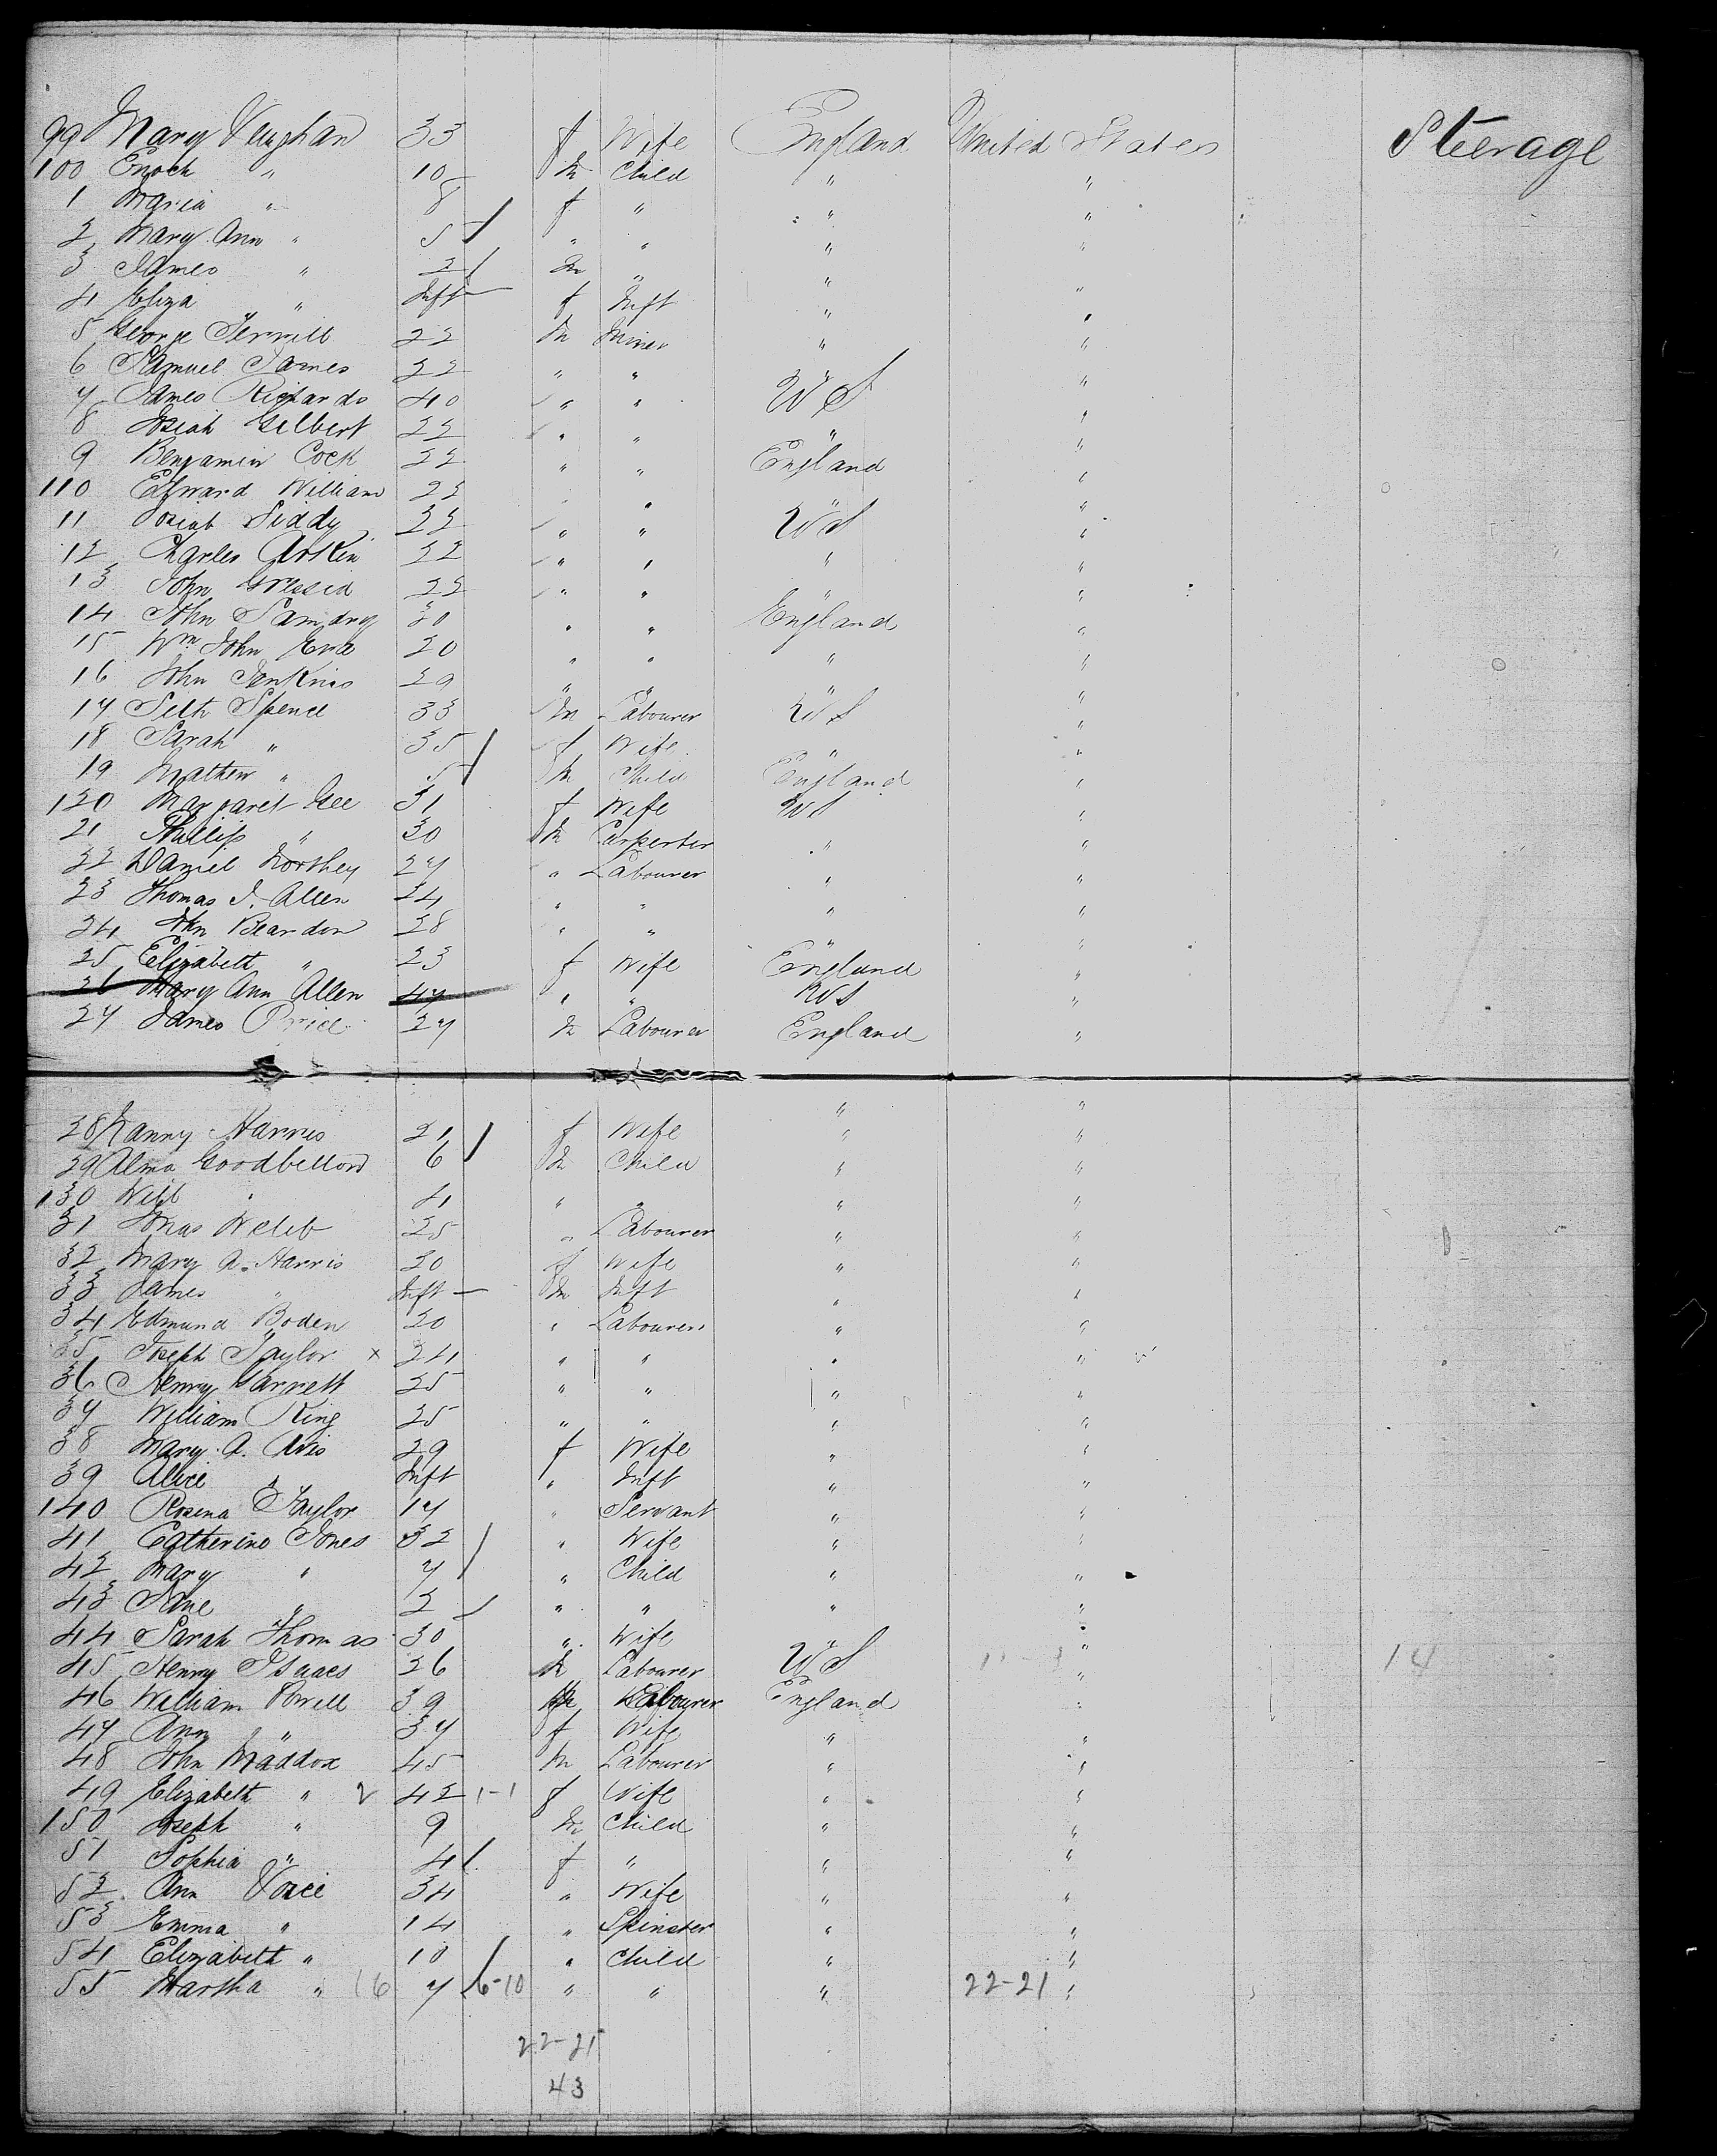 99 Mary Vaughan 33 f Wife England United States Steerage
100 Enoch " 10 m Child " "
1 Maria " 8 f " " "
2 Mary Ann " 5 " " " "
3 James " 2 m " " "
4 Eliza " Inft f Inft " "
5 George Terrill 22 m Miner " "
6 Samuel James 22 " " " "
7 James Richards 40 " " US "
8 Josiah Gilbert 22 " " " "
9 Benjamin Cock 22 " " England "
110 Edward William 22 " " " "
11 Josiah Siddy 22 " " US "
12 Charles 22 " " " "
13 John 22 " " " "
14 John 30 " " England "
15 Wm John 20 " " " "
16 John Jenkins 29 " " " "
17 Seth Spence 33 m Labourer US "
18 Sarah " 35 f Wife " "
19 Mathew " 5 m Child England "
120 Margaret Gee 31 f Wife US "
21 Phillip " 30 m Carpenter " "
22 Daniel Northey 27 " Labourer " "
23 Thomas J. Allen 24 " " " "
24 John Beardon 28 " " " "
25 Elizabeth " 23 f Wife England "
26 Mary Ann Allen 47 " " US "
27 James Price 27 m Labourer England "
" "
28 Nanny Harris 21 f Wife " "
29 Alma 6 m Child " "
130 Will " 4 " " " "
31 Jonas Webb 25 " Labourer " "
32 Mary A. Harris 20 f Wife " "
33 James " Inft m Inft " "
34 Edmund Boden 20 " Labourer " "
35 Joseph Taylor x 24 " " " "
36 Henry Garrett 25 " " " "
37 William King 25 " " " "
38 Mary A. Avis 29 f Wife " "
39 Alice " Inft " Inft " "
140 Rosena Taylor 17 " Servant " "
41 Catherine Jones 32 " Wife " "
42 Mary " 7 " Child " "
43 Jane " 2 " " " "
44 Sarah Thomas 30 " Wife " "
45 Henry Isaacs 26 m Labourer US " 14
46 William Powell 39 m Labourer England "
47 Ann " 37 f Wife " "
48 John Maddox 45 m Labourer " "
49 Elizabeth " 2 42 1-1 f Wife " "
150 Joseph " 9 m Child " "
51 Sophia " 4 f " " "
52 Ann 34 " Wife " "
53 Emma " 14 " Spinster " "
54 Elizabeth " 10 " Child " "
55 Martha " 16 7 6-10 " " " 22-21 "
22-21
43